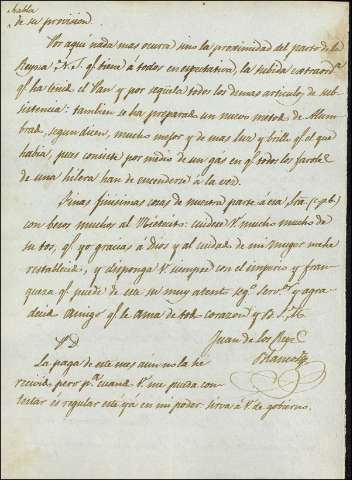 habla
de su provision.
Por aquí nada mas ocurre sino la proximidad del parto de la
Reyna N. S. qe tiene á todos en espectativa, la subida extraordª
qe ha tenido el Pan y por seguela todos los demas articulos de sub-
sistencia: tambien se ha preparado un nuevo metodo de Alum-
brado, segun dicen, mucho mejor y de mas luz y brillo qe el que
habia, pues consiste por medio de un gas en qe todos los faroles
de una hilera han de encenderse á la vez.
Dirás finisimas cosas de nuestra parte á esa Sra. (c. p. b.)
con besos muchos al Nietecito: cuidese V. mucho mucho de
su tos, qe yo gracias á Dios y al cuidado de mi Muger me he
restablecido, y disponga V. siempre con el imperio y fran-
queza qe puede de este su muy atento segº servor y agra-
decido amigo qe le ama de todo corazon y B. S. M.
Juan de los Reyes
PD
La paga de este mes aun no la he
recivido, pero pª cuando V. me pueda con-
textar es regular esté yá en mi poder sirva á V. de gobierno.